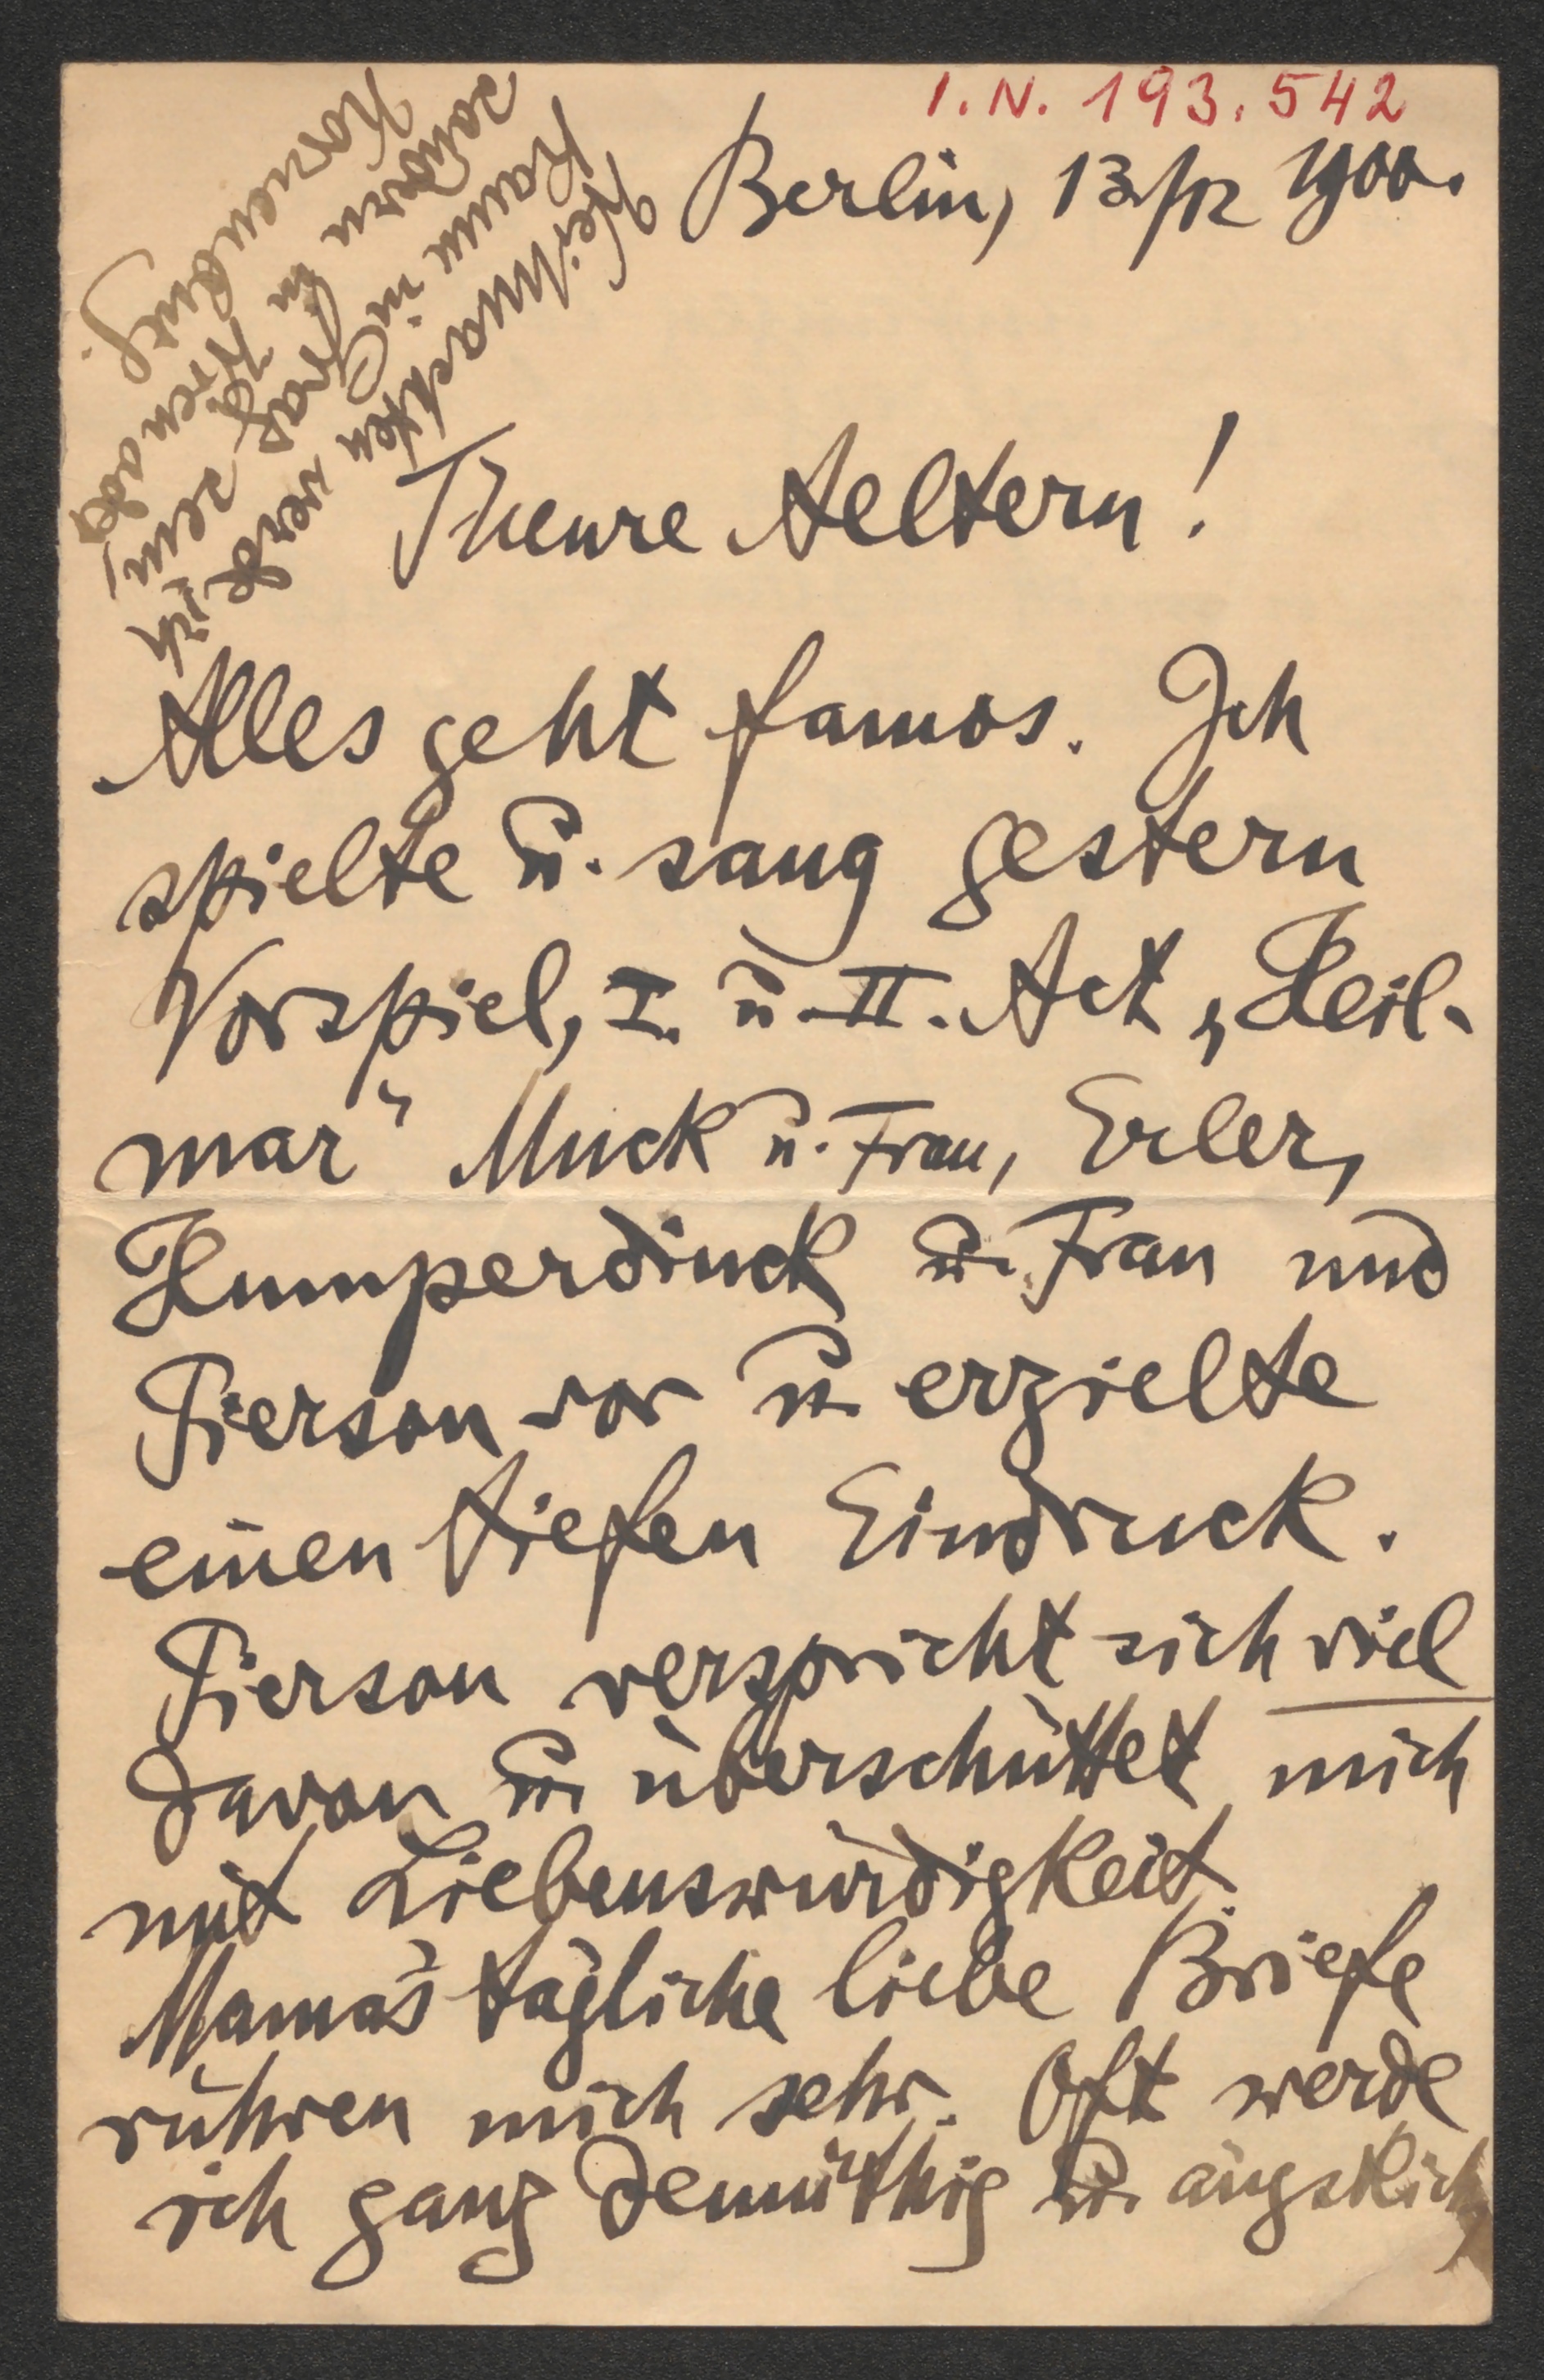 I.N. 193.542
Berlin, 13/12 1900.
Weihnachten werde ich
kaum in Graz sein,
sondern in Wien oder
Korneuburg.
Theure Aeltern!
Alles geht famos. Ich
spielte u. sang gestern
Vorspiel, I. u. II. Act „Heil-
mar" Muck u. Frau, Erler,
Humperdinck u. Frau und
Pierson vor u. erzielte
einen tiefen Eindruck.
Pierson verspricht sich viel
davon u. überschüttet mich
mit Liebenswürdigkeit.
Mama's tägliche liebe Briefe
rühren mich sehr. Oft werde
ich ganz demüthig u. ängstlich,